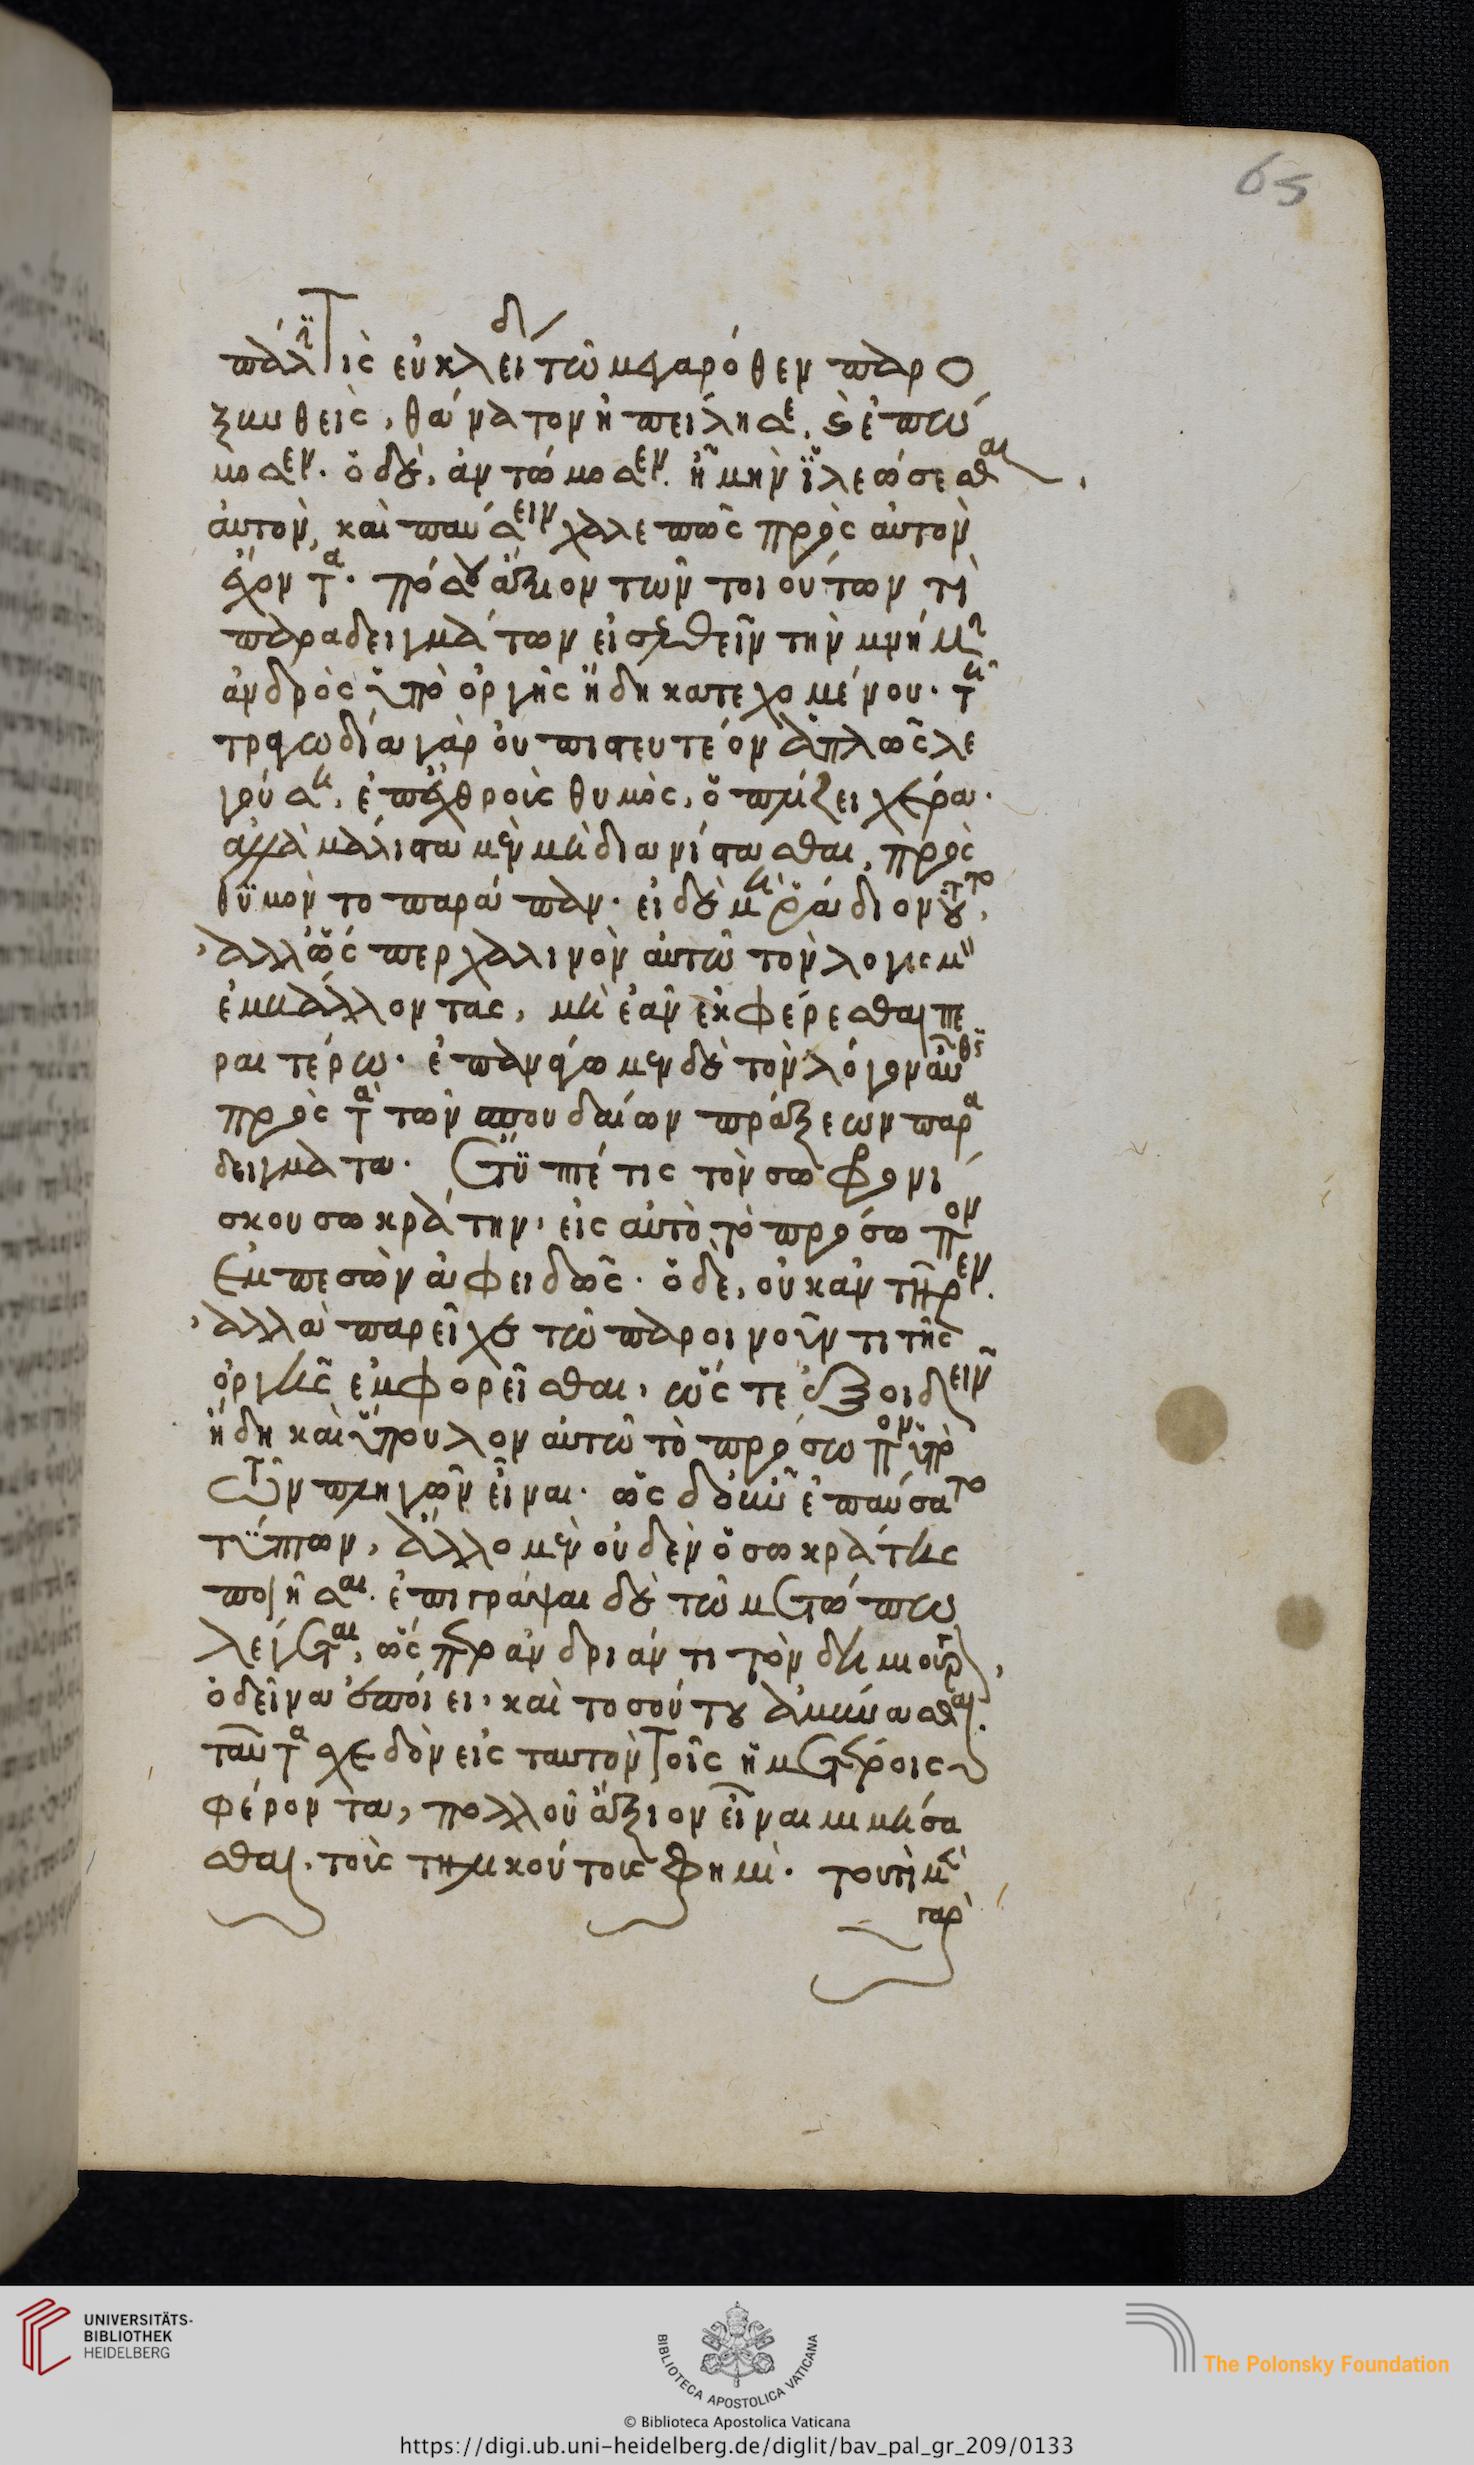 65
πάλιν τίς εὐκλείδη τῶ μεγαρόθεν παρο
ξυνθεὶς, θάνατον ἠπείλησε, καὶ ἐπώ
μοσεν. ὁ δὲ, ἀντώμοσεν. ἦ μὴν ἵλεώσεσθαι,
αὐτὸν, καὶ παύσειν χαλεπῶς πρὸς αὐτὸν
ἔχοντα. πόσου ἄξιον τῶν τοιούτων τὶ
παραδειγμάτων εἰσελθεῖν τὴν μνήμην
ἀνδρὸς ὑπὸ ὀργῆς ἤδη κατεχομένου. τῆ
τραγωδία γὰρ οὐ πιστευτέον ἁπλῶς λε
γούση, ἐπ' ἐχθροῖς θυμὸς, ὁπλίζει χέρα.
ἀλλὰ μάλιστα μὲν μὴ διανίστασθαι, πρὸς
θυμὸν τοπαράπαν. εἰ δὲ μὴ ῥάδιον τοῦτο,
ἀλλ' ὥσπερ χαλινὸν αὐτῶ τὸν λογισμὸν
ἐμβάλλοντας, μὴ ἐᾶν ἐκφέρεσθαι πε
ραιτέρω. ἐπαναγάγωμεν δὲ τὸν λόγον αὖθις
πρὸς τὰ τῶν σπουδαίων πράξεων παρα
δείγματα. ἔτυπτέ τις τὸν σωφρονί
σκου σωκράτην, εἰς αὐτὸ τὸ πρόσωπον
ἐμπεσὼν ἀφειδῶς. ὁ δὲ, οὐκ ἀντῆρεν.
ἀλλὰ παρεῖχε τῶ παροινοῦντι τῆς
ὀργῆς ἐμφορεῖσθαι, ὥστε ἐξοιδεῖν
ἤδη καὶ ὕπουλον αὐτῶ τὸ πρόσωπον ὑπὸ
τῶν πληγῶν εἶναι. ὡς δ' οὖν ἐπαύσατο
τύπτων, ἄλλο μὲν οὐδὲν ὁ σωκράτης
ποιῆσαι. ἐπιγράψαι δὲ τῶ μετώπω
λέγεται, ὥσπερ ἀνδριάντι τὸν δημιουργὸν,
ὁ δεῖνα ἐποίει, καὶ τοσοῦτον ἀμύνασθαι.
ταῦτα σχεδὸν εἰς ταυτὸν τοῖς ἡμετέροις
φέροντα, πολλοῦ ἄξιον εἶναι μιμήσα
σθαι. τοὺς τηλικούτους φημὶ. τουτὶ μὲν
γὰρ